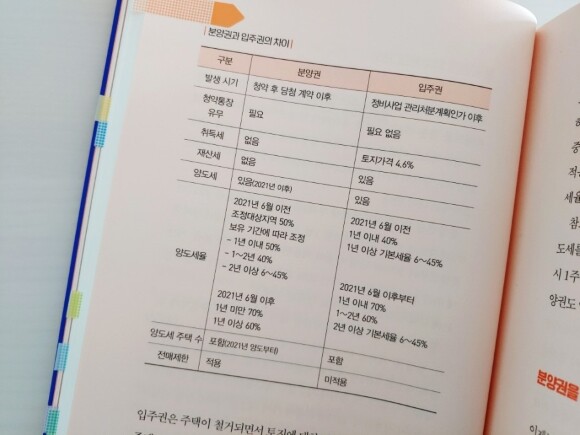 분양권과 입주권의 차이
구분 분양권 입주권
발생 시기 청약 후 당첨 계약 이후 정비사업 관리처분계획인가 이후
청약통장 유무 필요 필요 없음
취득세 없음 토지가격 4.6%
재산세 없음 있음
양도세 있음(2021년 이후) 있음
양도세율
2021년 6월 이전
조정대상지역 50%
보유 기간에 따라 조정
- 1년 이내 50%
- 1~2년 40%
- 2년 이상 6~45%
2021년 6월 이후
1년 미만 70%
1년 이상 60%
2021년 6월 이전
1년 이내 40%
1년 이상 기본세율 6~45%
2021년 6월 이후부터
1년 이내 70%
1~2년 60%
2년 이상 기본세율 6~45%
양도세 주택 수 포함(2021년 양도부터) 포함
전매제한 적용 미적용
입주권은 주택이 철거되면서 토지에
세율
도세를
시 1주
양권도
분양권을